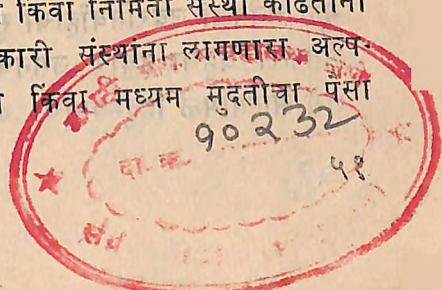 किंवा निर्मिती संस्था काढताना
कारी संस्थांना लागणारा अल्प-
किंवा मध्यम मुदतीचा पैसा
१०२३२
दा. क्र.
५१